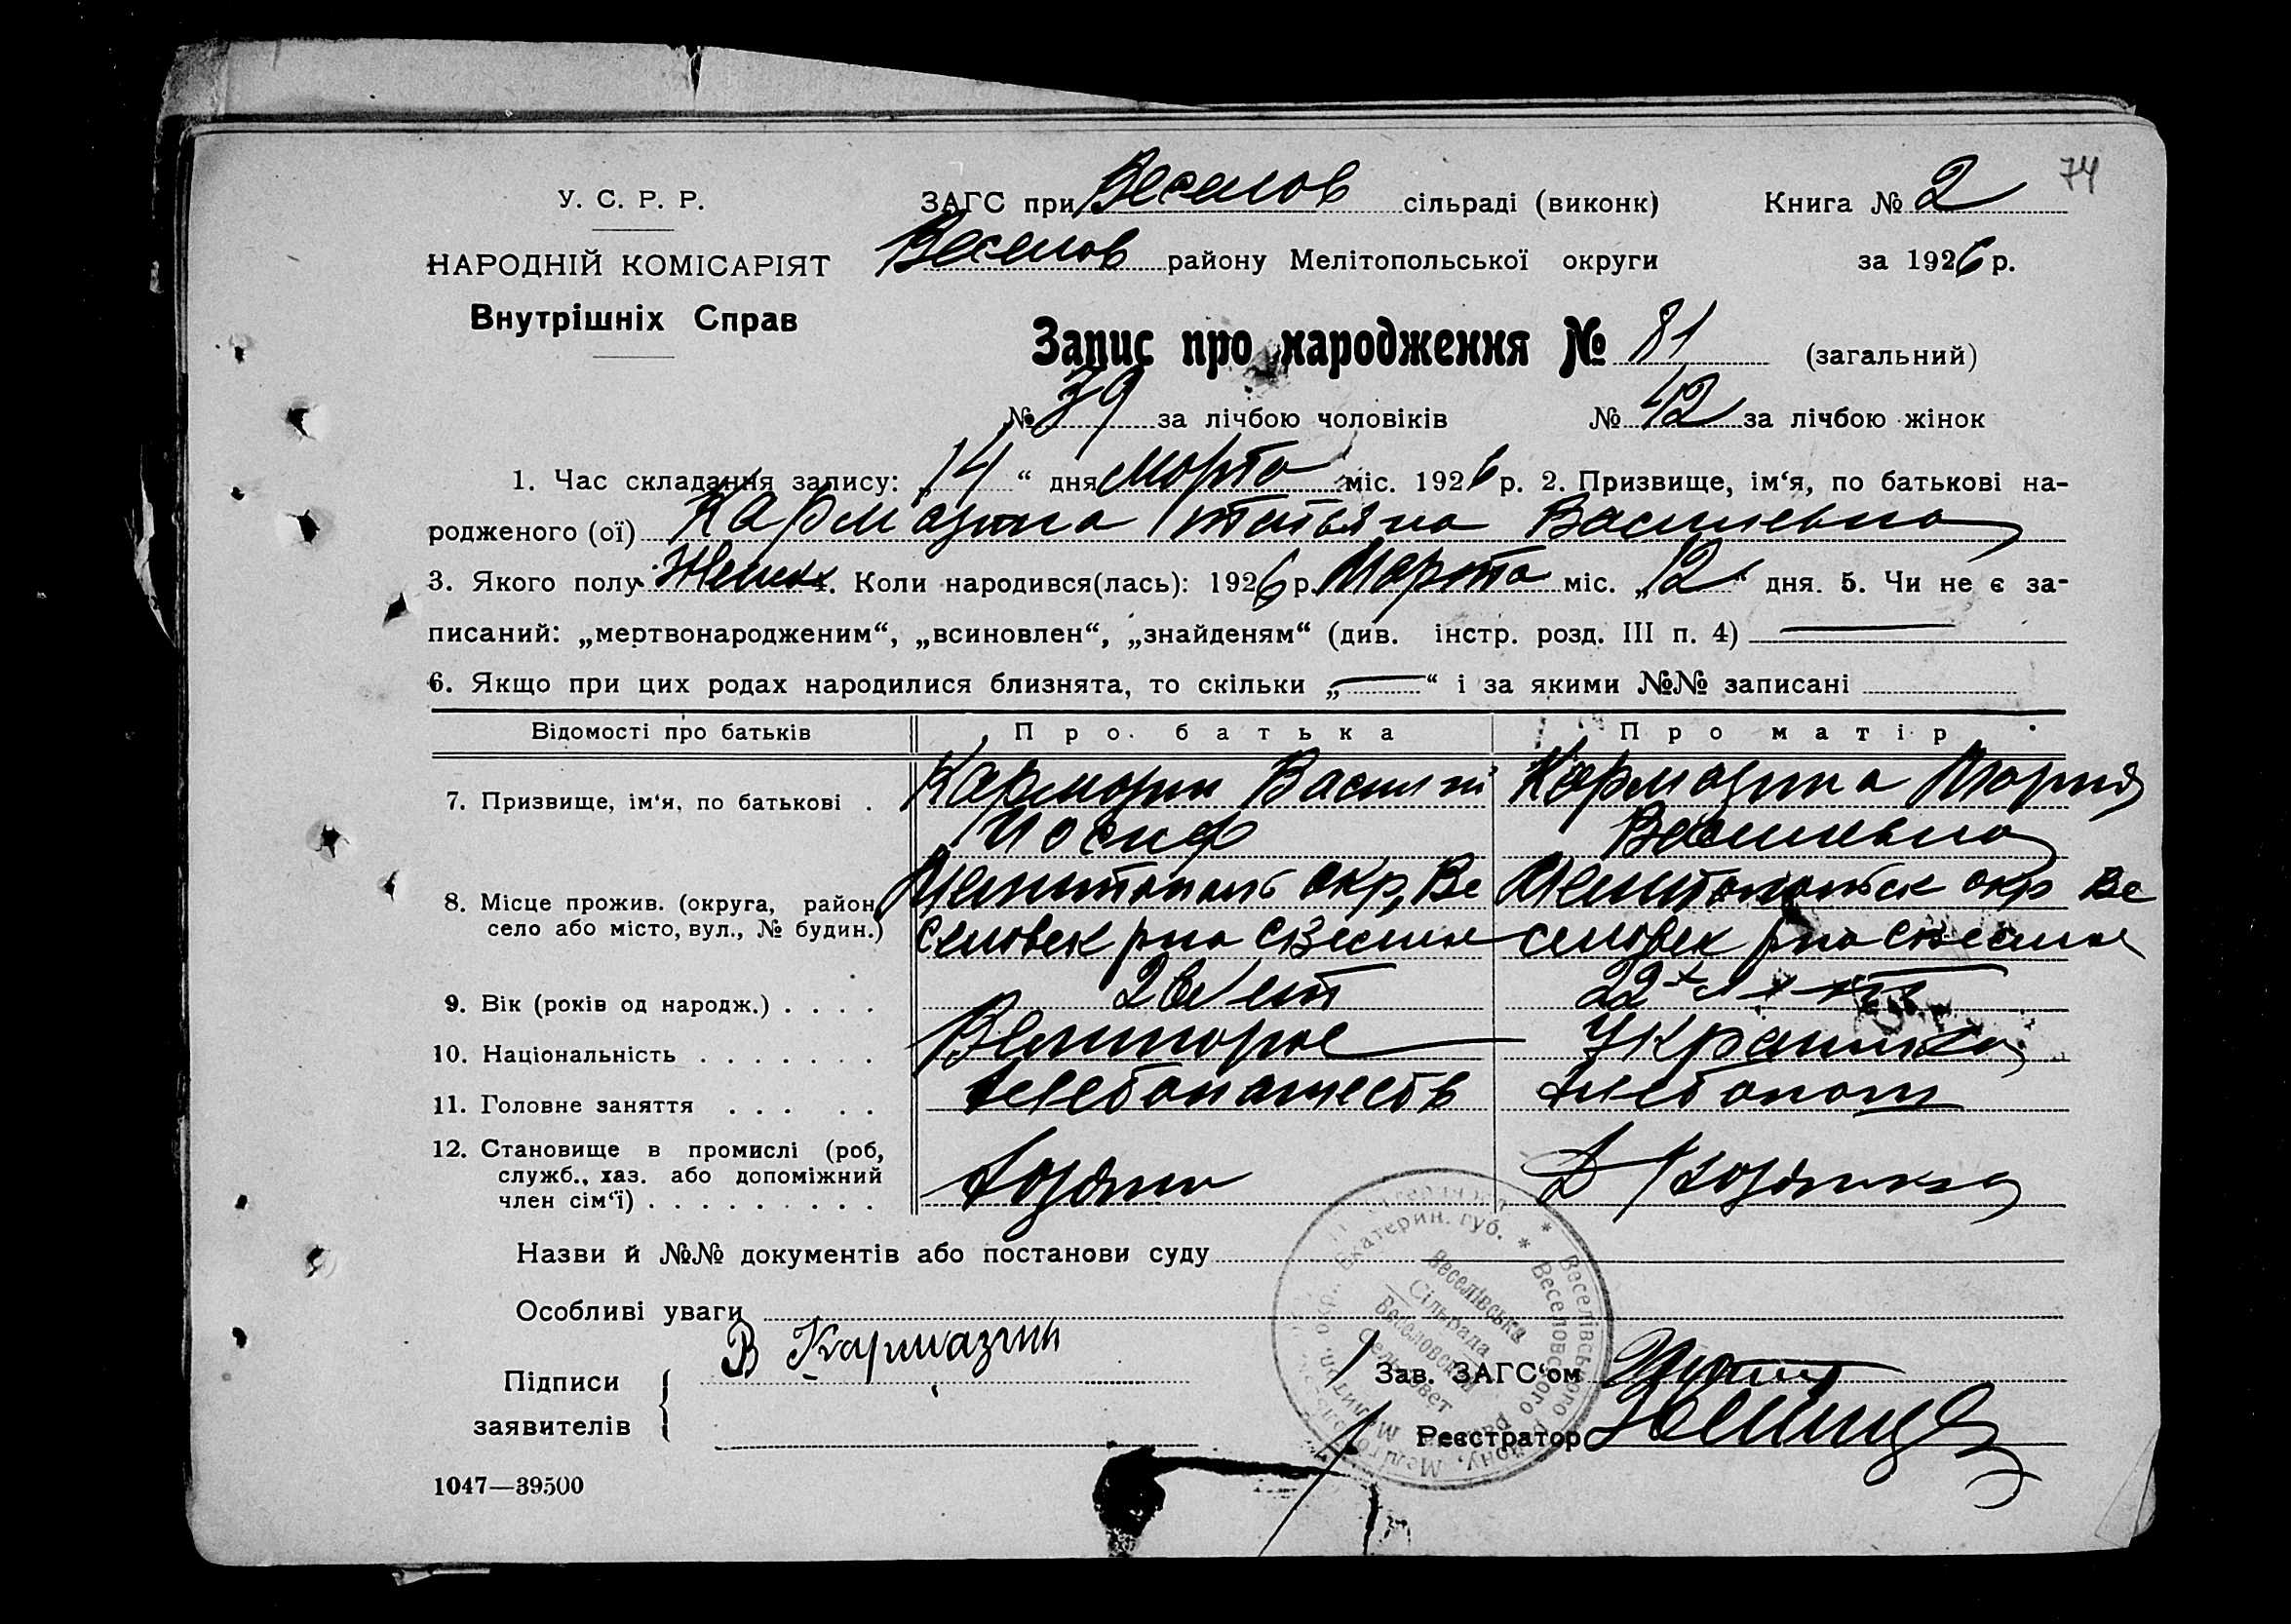 74
У. С. Р. Р.
НАРОДНІЙ КОМІСАРІЯТ
Внутрішніх Справ
ЗАГС при Веселов сільраді (виконк) Книга № 2
Веселов району Мелітопольської округи за 1926 р.
Запис про народження № 81 (загальний)
№ 39 за лічбою чоловіків № 42 за лічбою жінок
1. Час складання запису: „14“ дня Марта міс. 1926 р. 2. Призвище, ім‘я, по батькові на-
родженого (ої) Кармазина Татьяна Васильевна
3. Якого полу Женск 4. Коли народився(лась): 1926 р. Марта міс. „12“ дня. 5. Чи не є за-
писаний: „мертвонародженим“, „всиновлен“, „знайденям“ (див. інстр. розд. III п. 4)
6. Якщо при цих родах народилися близнята, то скільки „ “ і за якими №№ записані
Відомості про батьків Про батька Про матір
7. Призвище, ім‘я, по батькові . Кармазин Василий Кармазина Мария
Иосиф Васильевна
8. Місце прожив. (округа, район, Мелитополь окр, Ве Мелитопольск окр Ве
село або місто, вул., № будин.) селовск рна с Веселое селовск рна с Веселое
9. Вік (років од народж.) . . . . лет 22
10. Національність . . . . . . . Великорос Украинка
11. Головне заняття . . . . . Хлебопашеств Хлебопаш
12. Становище в промислі (роб,
служб., хаз. або допоміжний Хозяин Д Хозяика
член сім‘ї) . . . . . . . . .
Назви й №№ документів або постанови суду
Особливі уваги
В Кармазин
Підписи
заявителів
Зав. ЗАГС‘ом
Реєстратор
Екатерин. губ. * Веселовского
Веселівського
Веселівська
Сільрада
Веселовский
Сельсовет
1047—39500